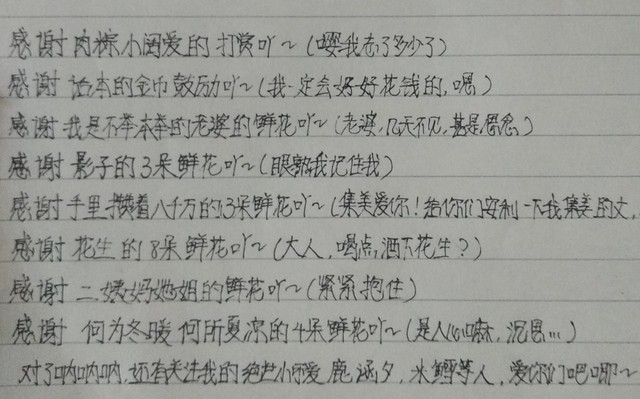 感谢 肉粽小阔爱的 打赏吖~(嘤我忘了多少了)
感谢 话本的金币鼓励吖~(我一定会好好花钱的,嗯)
感谢 我是不李本李的老婆的鲜花吖~(老婆,几天不见,甚是想念)
感谢 影子的3朵鲜花吖~(眼熟我记住我)
感谢 手里攒着八千万的13朵鲜花吖~(集美爱你!给你们安利一下我集美的文,
感谢 花生 的 8朵 鲜花吖~(大人,喝点酒下花生?)
感谢 二 姨妈她姐的鲜花吖~(紧紧抱住)
感谢 何为冬暖 何所夏凉的4朵鲜花吖~(是人心嘛,沉思...)
对了呐呐呐,还有关注我的绝世小可爱 鹿涵夕,冰 等人,爱你们吧唧~